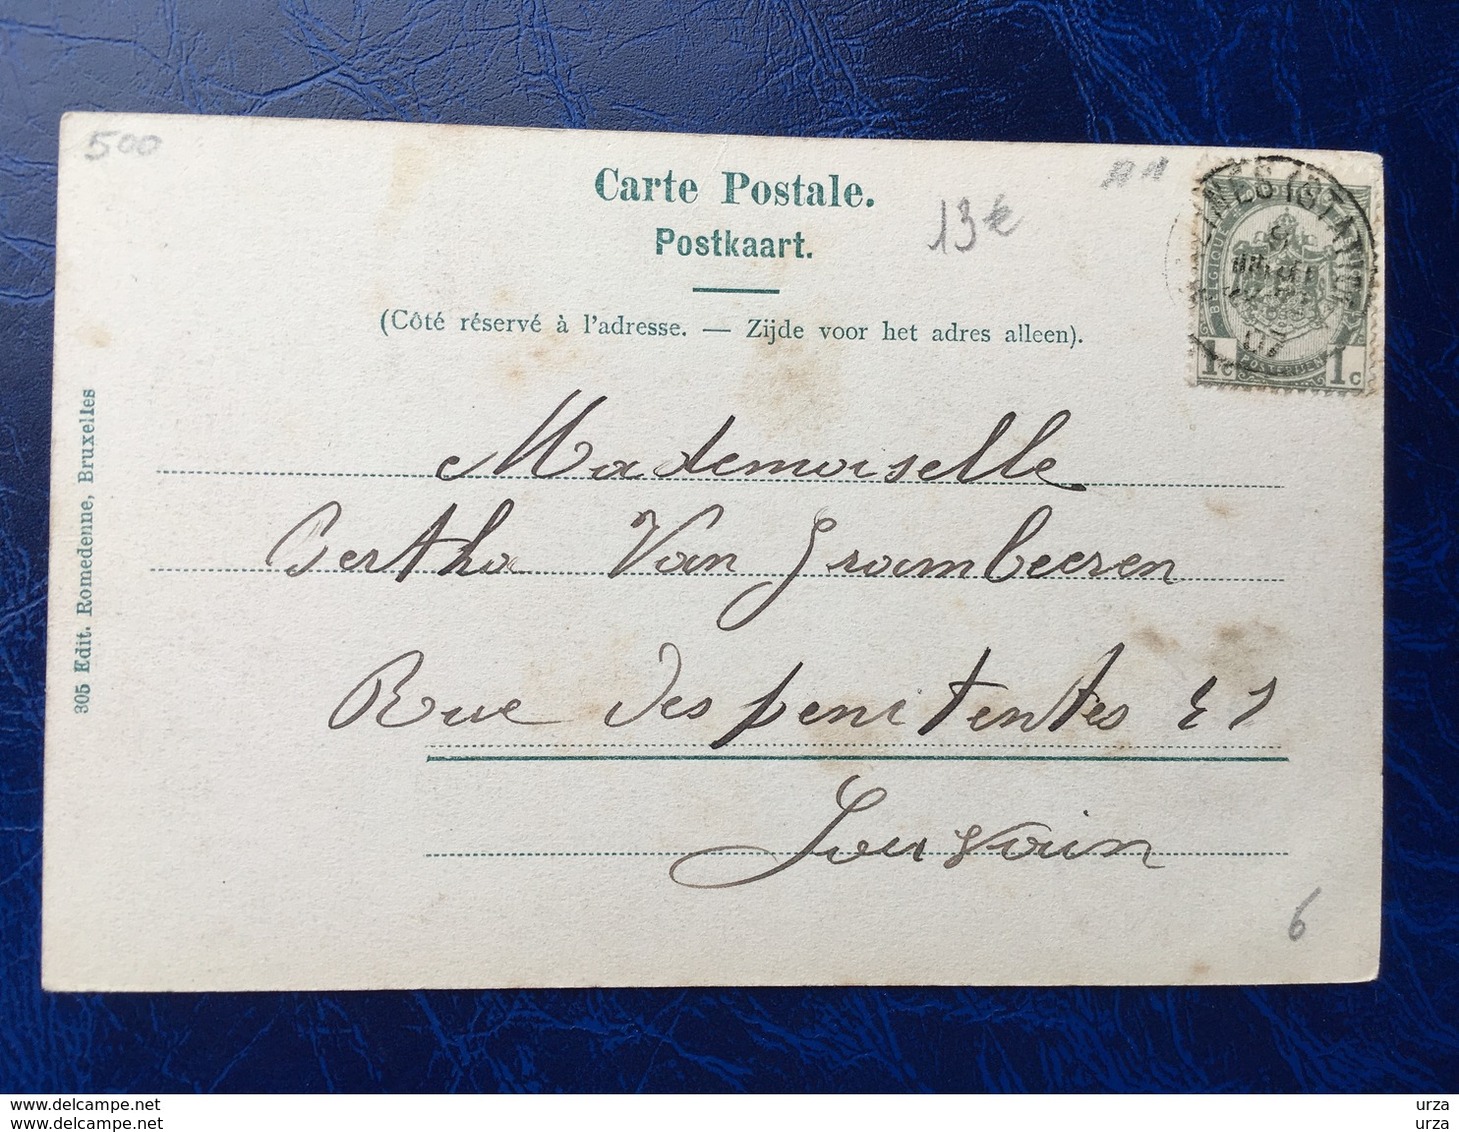 500
Carte Postale.
13€
Postkaart.
(Côté réservé à l'adresse. — Zijde voor het adres alleen).
BELGIQUE
POSTERIJEN
1c 1c
INES (STATI
Mademoiselle
Bertha Van Grambeeren
Rue des penitentes 21
Louvain
6
305 Edit. Romedenne, Bruxelles
www.delcampe.net
urza
www.delcampe.net
urza